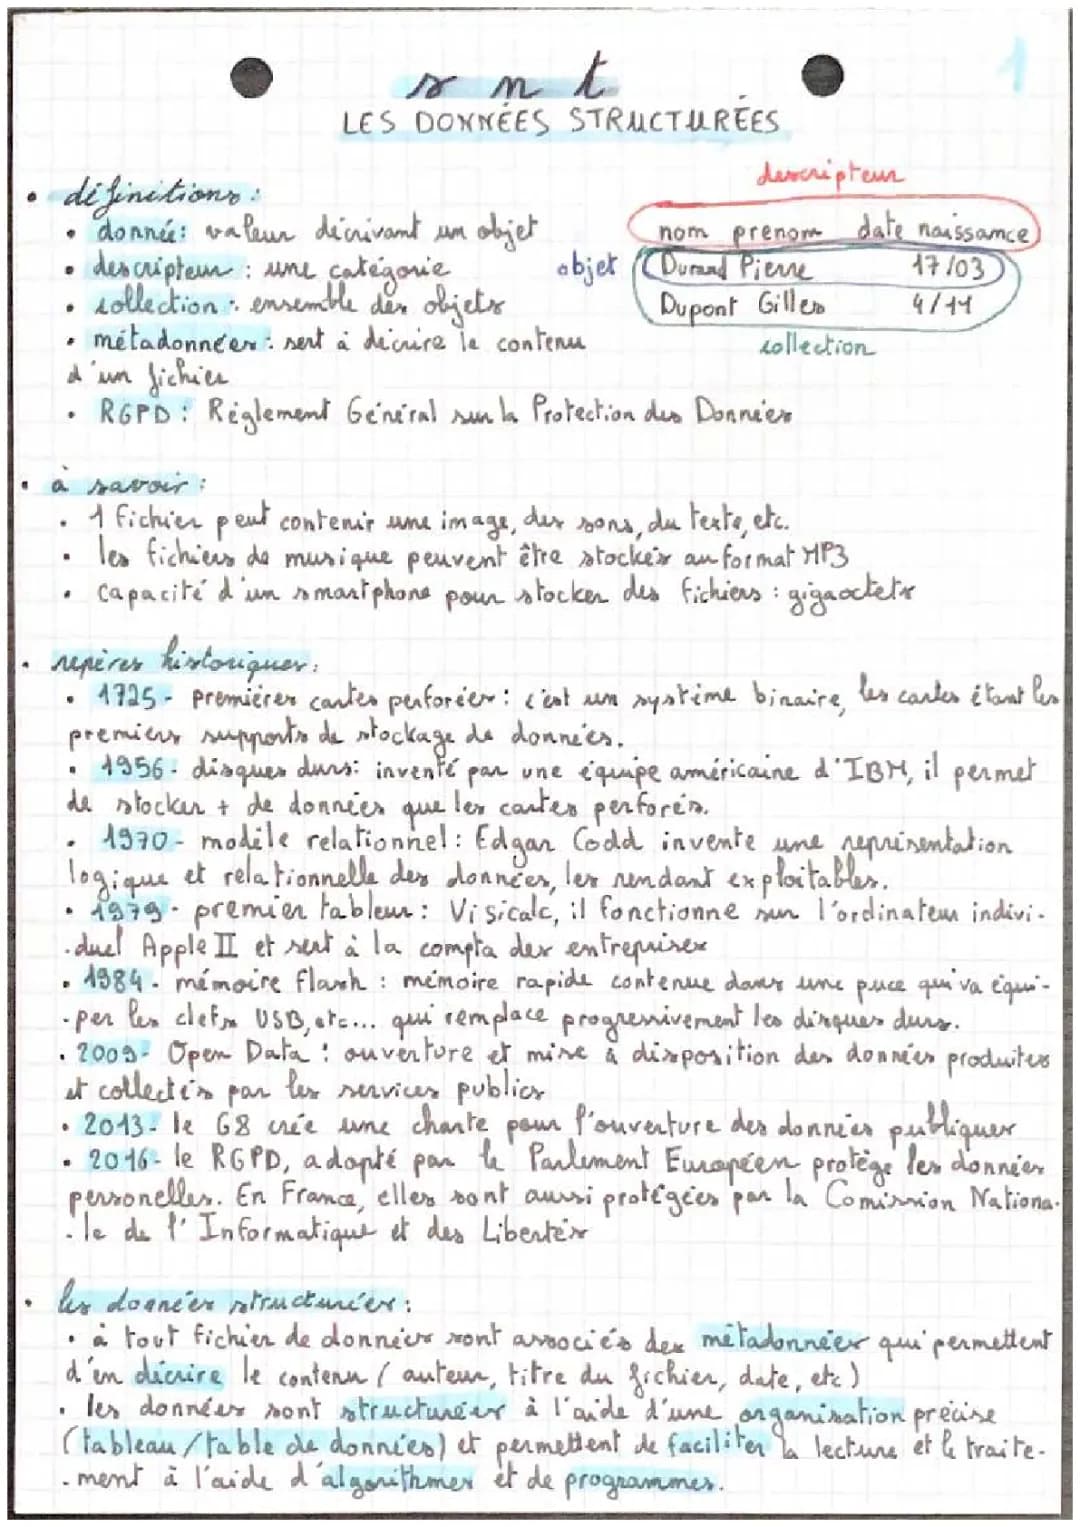 1
snt
LES DONNÉES STRUCTURÉES
descripteur
• définitions :
• donnée : valeur décrivant un objet
nom prenom date naissance
• descripteur : une catégorie
objet Durand Pierre 17/03
• collection : ensemble des objets
Dupont Gilles 4/11
• métadonnées : sert à décrire le contenu
collection
d'un fichier
• RGPD : Réglement Général sur la Protection des Données
• à savoir :
• 1 fichier peut contenir une image, des sons, du texte, etc.
• les fichiers de musique peuvent être stockés au format MP3
• capacité d'un smartphone pour stocker des fichiers : gigaoctets
• repères historiques :
• 1725 - premières cartes perforées : c'est un système binaire, les cartes étant les
premiers supports de stockage de données.
• 1956 - disques durs : inventé par une équipe américaine d'IBM, il permet
de stocker + de données que les cartes perforés.
• 1970 - modèle relationnel : Edgar Codd invente une représentation
logique et relationnelle des données, les rendant exploitables.
• 1979 - premier tableur : Visicalc, il fonctionne sur l'ordinateur indivi-
-duel Apple II et sert à la compta des entreprises
• 1984 - mémoire flash : mémoire rapide contenue dans une puce qui va équi-
-per les clefs USB, etc... qui remplace progressivement les disques durs.
• 2009 - Open Data : ouverture et mise à disposition des données produites
et collectés par les services publics
• 2013 - le G8 crée une charte pour l'ouverture des données publiques
• 2016 - le RGPD, adopté par le Parlement Européen protège les données
personelles. En France, elles sont aussi protégées par la Comission Nationa-
-le de l'Informatique et des Libertés
• les données structurées :
• à tout fichier de données sont associés des métadonnées qui permettent
d'en décrire le contenu (auteur, titre du fichier, date, etc)
• les données sont structurées à l'aide d'une organisation précise
(tableau/table de données) et permettent de faciliter la lecture et le traite-
-ment à l'aide d'algorithmes et de programmes.